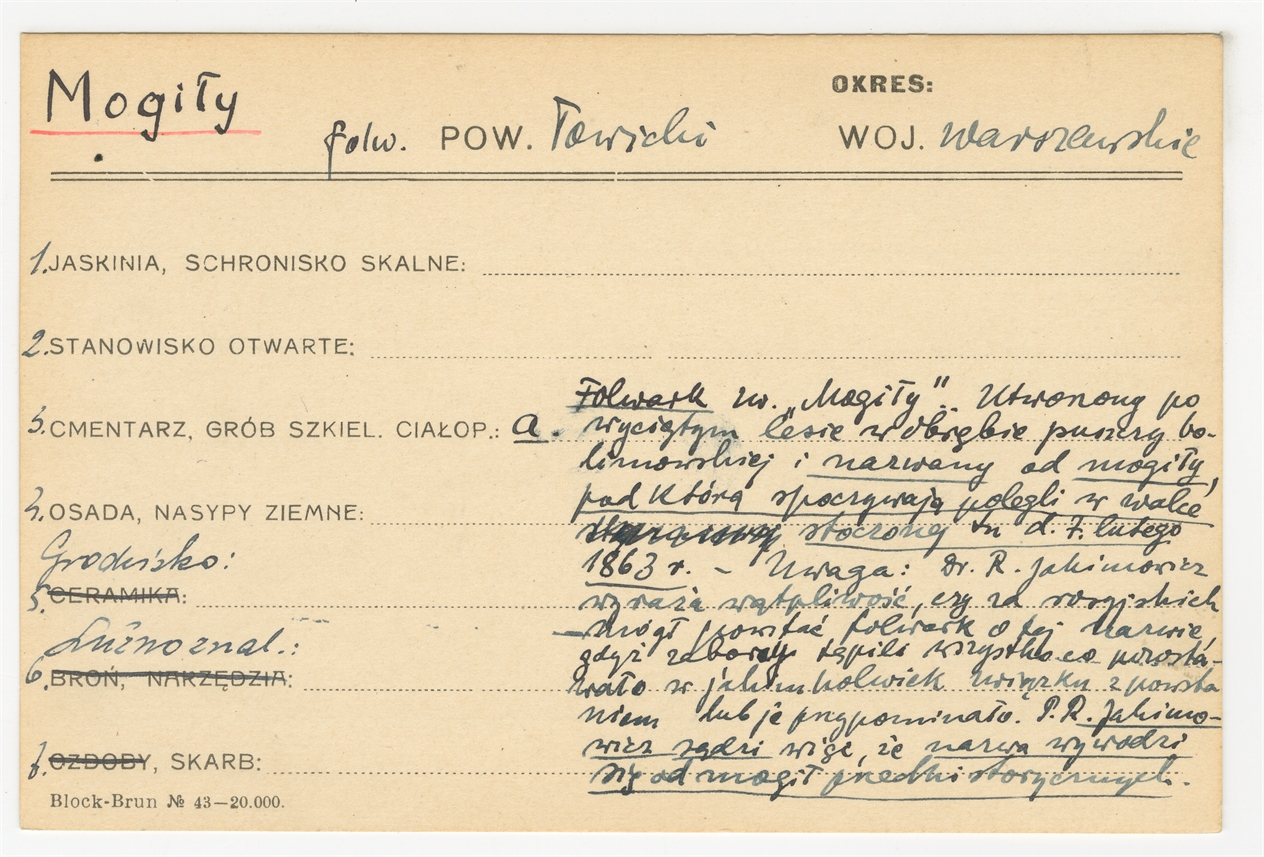 Mogiły
OKRES:
folw. POW. Łowicki WOJ. warszawskie
1. JASKINIA, SCHRONISKO SKALNE:
2. STANOWISKO OTWARTE:
3. CMENTARZ, GRÓB SZKIEL. CIAŁOP.: a.
Folwark zw. „Mogiły”. Utworzony po
wyciętym lesie w obrębie puszczy bo-
limowskiej i nazwany od mogiły,
pod którą spoczywają polegli w walce
stoczonej tu d. 7. lutego
1863 r. – Uwaga: Dr. R. Jakimowicz
wyraża wątpliwość, czy za rosyjskich
mógł powstać folwark o tej nazwie,
gdyż zaborcy tępili wszystko co pozosta-
wało w jakimkolwiek związku z powsta
niem lub je przypominało. P. R. Jakimo-
wicz sądzi więc, że nazwa wywodzi
się od mogił przedhistorycznych.
4. OSADA, NASYPY ZIEMNE:
Grodzisko:
5. CERAMIKA:
Luźno znal.:
6. BROŃ, NARZĘDZIA:
7. OZDOBY, SKARB:
Block-Brun № 43—20.000.